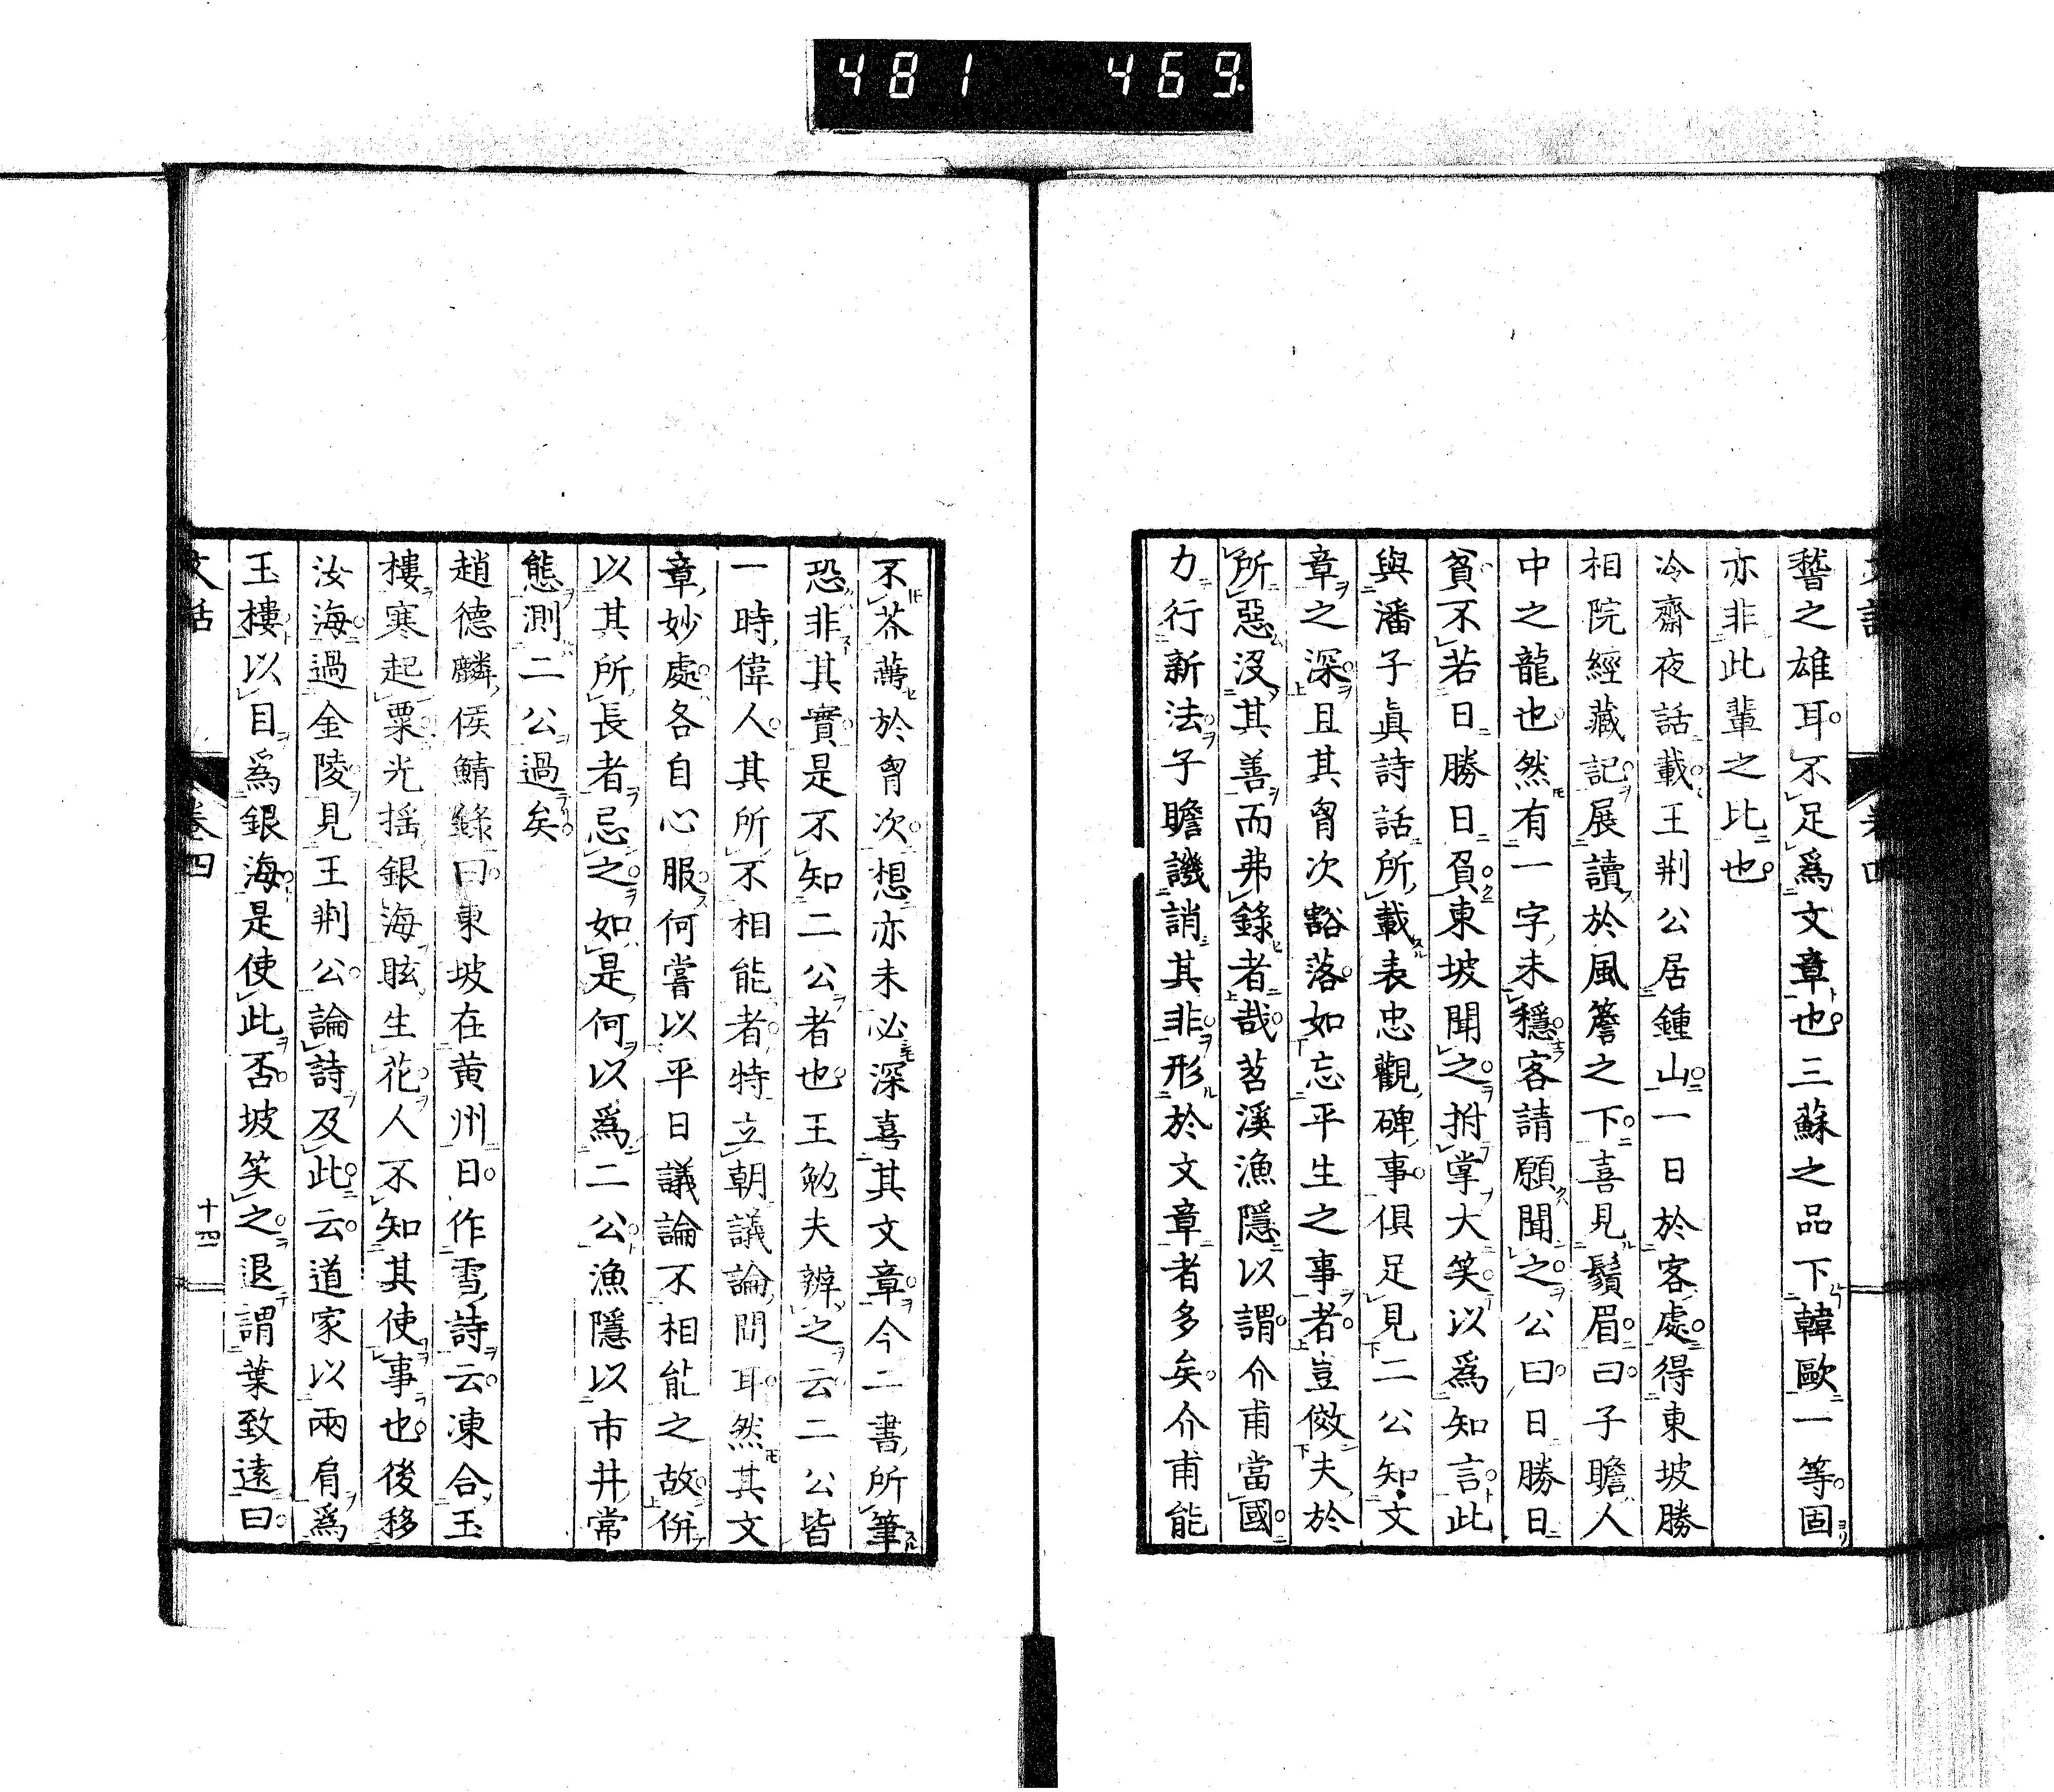 481 469.
謷之雄耳不足爲文章也三蘇之品下韓歐一等固
亦非此輩之比也
冷齋夜話載王荆公居鍾山一日於客處得東坡勝
相院經藏記展讀於風簷之下喜見鬚眉曰子瞻人
中之龍也然有一字未穩客請願聞之公曰日勝日
貧不若日勝日負東坡聞之拊掌大笑以爲知言此
與潘子眞詩話所載表忠觀碑事俱足見二公知文
章之深且其胷次豁落如忘平生之事者豈傚夫於
所惡沒其善而弗錄者哉苕溪漁隱以謂介甫當國
力行新法子瞻譏誚其非形於文章者多矣介甫能
不芥蔕於胷次想亦未必深喜其文章今二書所筆
恐非其實是不知二公者也王勉夫辨之云二公皆
一時偉人其所不相能者特立朝議論間耳然其文
章妙處各自心服何嘗以平日議論不相能之故併
以其所長者忌之如是何以爲二公漁隱以市井常
態測二公過矣
趙德麟侯鯖錄曰東坡在黄州日作雪詩云凍合玉
樓寒起粟光搖銀海眩生花人不知其使事也後移
汝海過金陵見王荆公論詩及此云道家以兩肩爲
玉樓以目爲銀海是使此否坡笑之退謂葉致遠曰
文話 卷四 十四